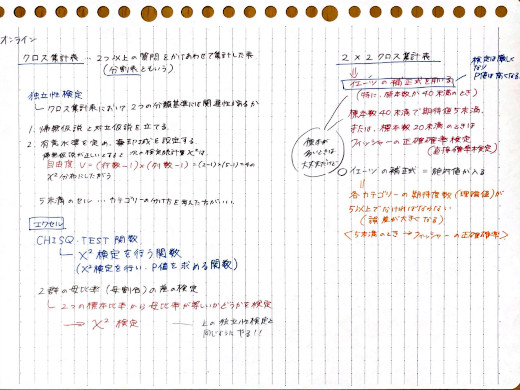 オンライン
クロス集計表 … 2つ以上の質問をかけあわせて集計した表
(分割表ともいう)
独立性検定
クロス集計表において2つの分類基準には関連性があるか
1. 帰無仮説と対立仮説を立てる
2. 有意水準を定め、棄却域を設定する
帰無仮説が正しいとすると、次の検定統計量χ²は、
自由度 ν=(行数-1)×(列数-1)
χ²分布にしたがう
5未満のセル … カテゴリーの分け方を考えた方が…
エクセル
CHISQ.TEST 関数
χ²検定を行う関数
(χ²検定を行い、P値を求める関数)
2群の母比率(母割合)の差の検定
2つの標本比率から母比率が等しいかどうかを検定
→ χ²検定
上の独立性検定と
同じようにやる!!
2×2クロス集計表
検定は厳しく
なり
P値は高くなる
イエーツの補正式を用いる
(特に、標本数が40未満のとき)
標本数40未満で期待値5未満、
または、標本数20未満のときは
フィッシャーの正確確率検定
(直接確率検定)
標本が
多いときは
大丈夫だけど
イエーツの補正式 = 絶対値が入る
各カテゴリーの期待度数(理論値)が
5以上でなければならない
(誤差が大きくなる)
<5未満のとき→フィッシャーの正確確率>